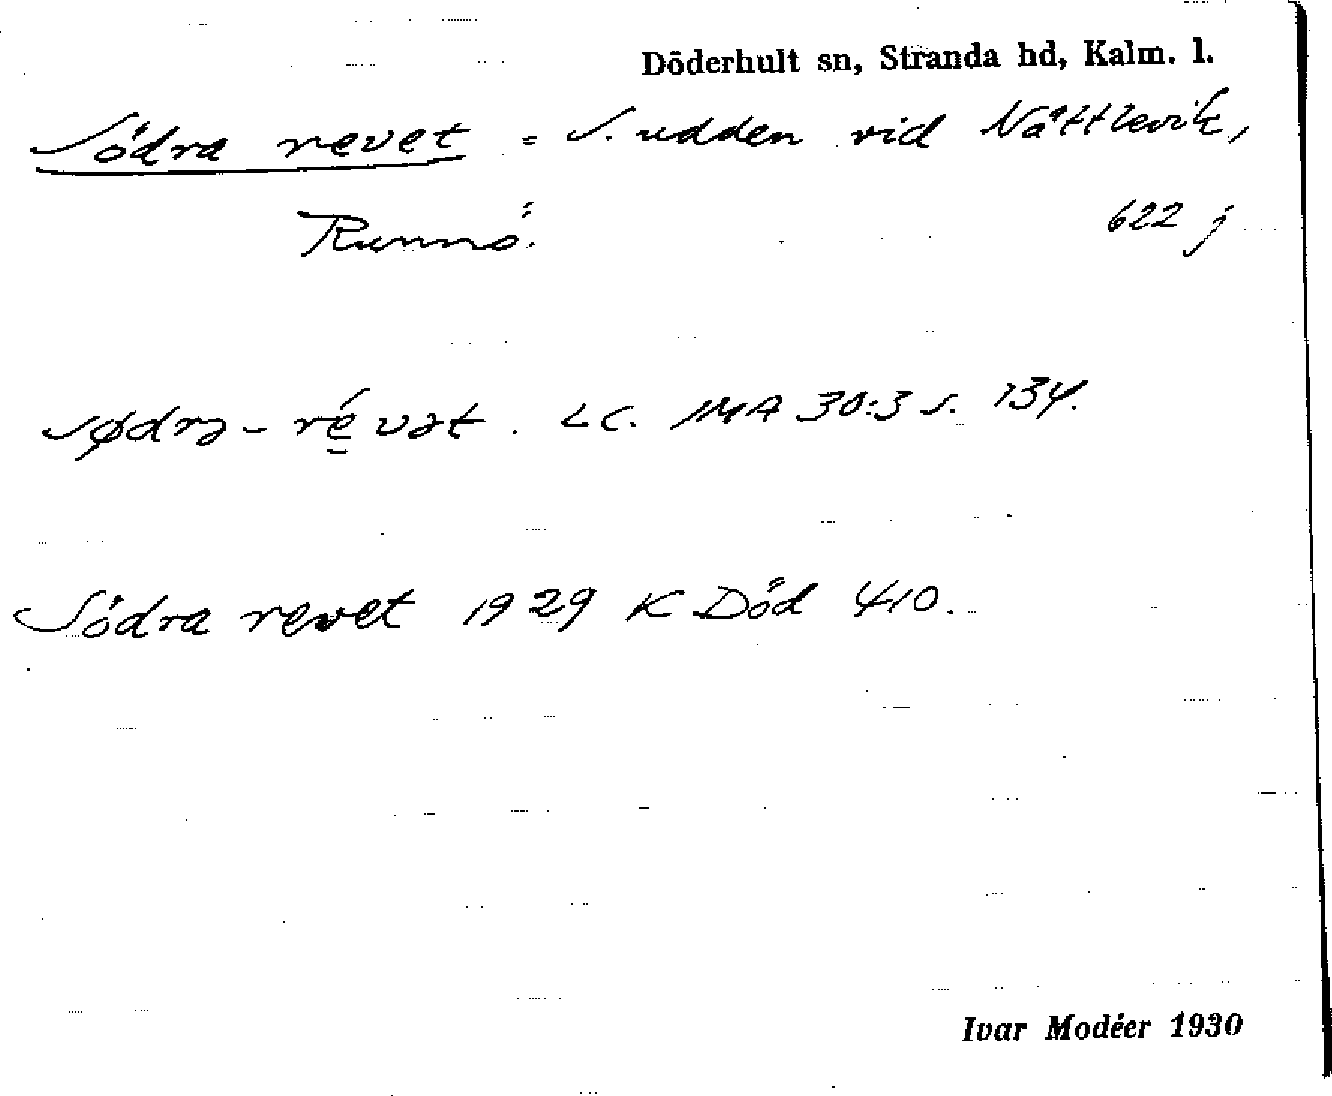 Döderhult sn, Stranda hd, Kalm. l.
Södra revet = S. udden vid Nåttlevik,
Runnö. 622 j
sødrə-révət. LC. IMA 30:3 s. 134.
Södra revet 1929 K Död 410.
Ivar Modéer 1930